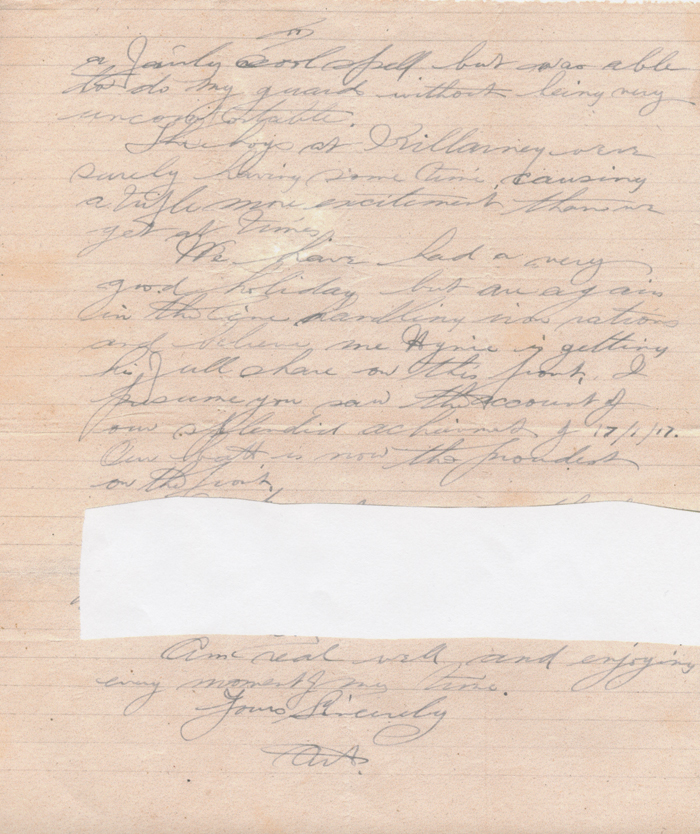 a fairly cool spell but was able
to do my guard without being very
uncomfortable.
The boys at Killarney were
surely having some time, causing
a trifle more excitement than we
get at times
We have had a very
good holiday but are again
in the line handling iron rations
and believe me Heynie is getting
his full share on this front. I
presume you saw the account of
our splendid achievment of 17/1/17.
Our batt is now the proudest
on the front.
Am real well and enjoying
every moment of my time.
Yours Sincerely
Art.